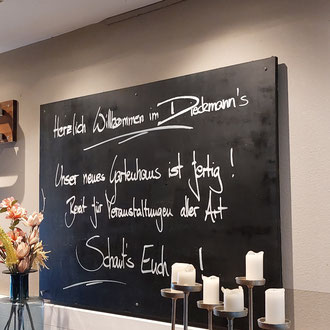 Herzlich Willkommen im Dieckmann's
Unser neues Gartenhaus ist fertig!
Bereit für Veranstaltungen aller Art
Schaut's Euch !